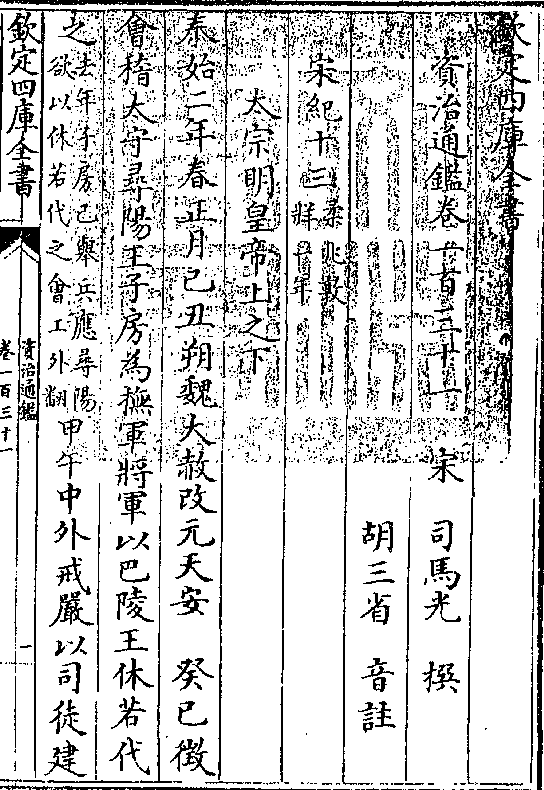 欽定四庫全書
資治通鑑卷一百三十一
宋 司馬光 撰
胡三省 音註
宋紀十三柔兆敦牂一年
太宗明皇帝上之下
泰始二年春正月己丑朔魏大赦改元天安 癸巳徵
會稽太守尋陽王子房為撫軍將軍以巴陵王休若代
之去年子房已舉兵應尋陽欲以休若代之會工外翻甲午中外戒嚴以司徒建
欽定四庫全書
資治通鑑
卷一百三十一
一